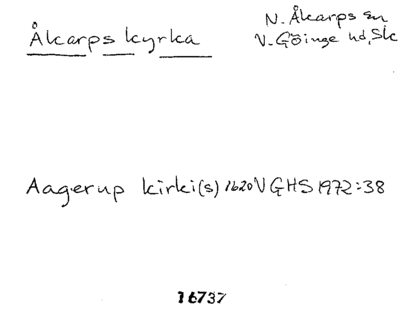 Åkarps kyrka
N. Åkarps sn
V. Göinge hd, Sk
Aagerup kirki(s) 1620 VGHS 1972:38
16737